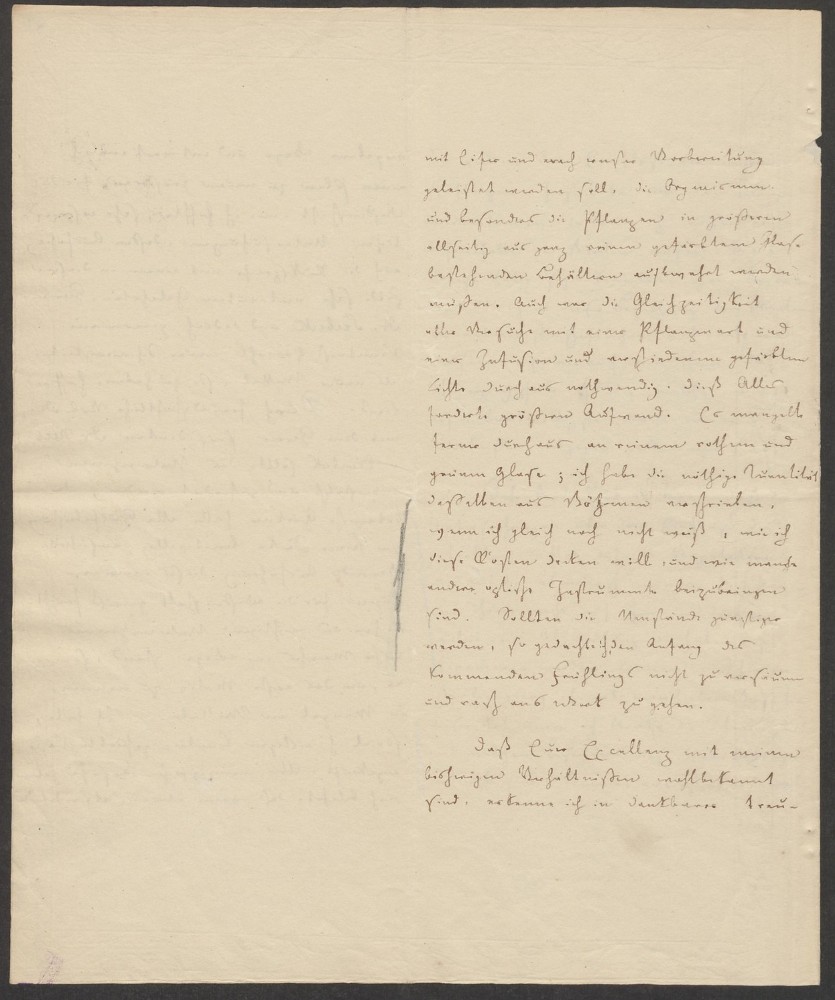 mit Eifer und nach reifer Vorbereitung
geleistet werden soll, die Organismen
und besonders die Pflanzen in größeren
allseitig aus ganz reinem gefärbtem Glase
bestehenden Behältern aufbewahrt werden
müßen. Auch war die Gleichzeitigkeit
aller Versuche mit einer Pflanzenart und
einer Infusion und verschiedenem gefärbtem
Lichte durchaus nothwendig. Dieß Alles
forderte größern Aufwand. Es mangelte
ferner durchaus an reinem rothem und
grünem Glase; ich habe die nöthige Quantität
desselben aus Böhmen verschrieben,
wenn ich gleich noch nicht weiß, wie ich
diese Kosten decken will, und wie manche
andere optische Instrumente beizubringen
sind. Sollten die Umstände günstiger
werden, so gedächte ich den Anfang des
kommenden Frühlings nicht zu versäumen
und rasch ans Werk zu gehen.
Daß Euer Excellenz mit meinen
bisherigen Verhältnißen wohlbekannt
sind, erkenne ich in dankbarer treu-